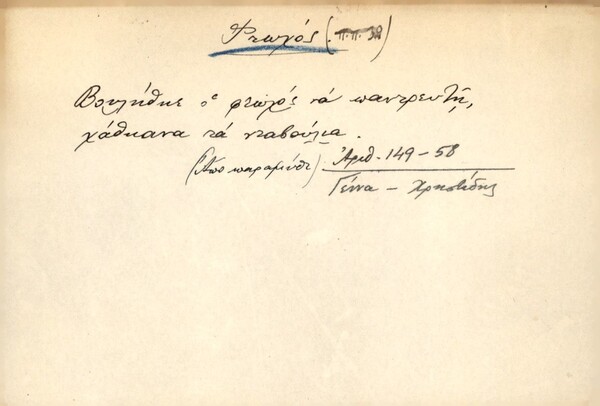 Φτωχός (Π.Π. 38)
Βουλήθηκε ὁ φτωχός νά παντρευτῆ,
χάθηκανα τά νταβούλια.
(Ἀπο παραμύθι) Ἀριθ. 149-58
Γέννα - Χρηστίδης